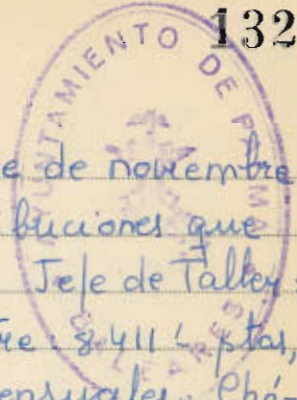 132
AYUNTAMIENTO DE PALMA
BALEARES
e de noviembre
buciones que
Jefe de Taller
re: 8.411'- ptas,
ensuales. Chó-